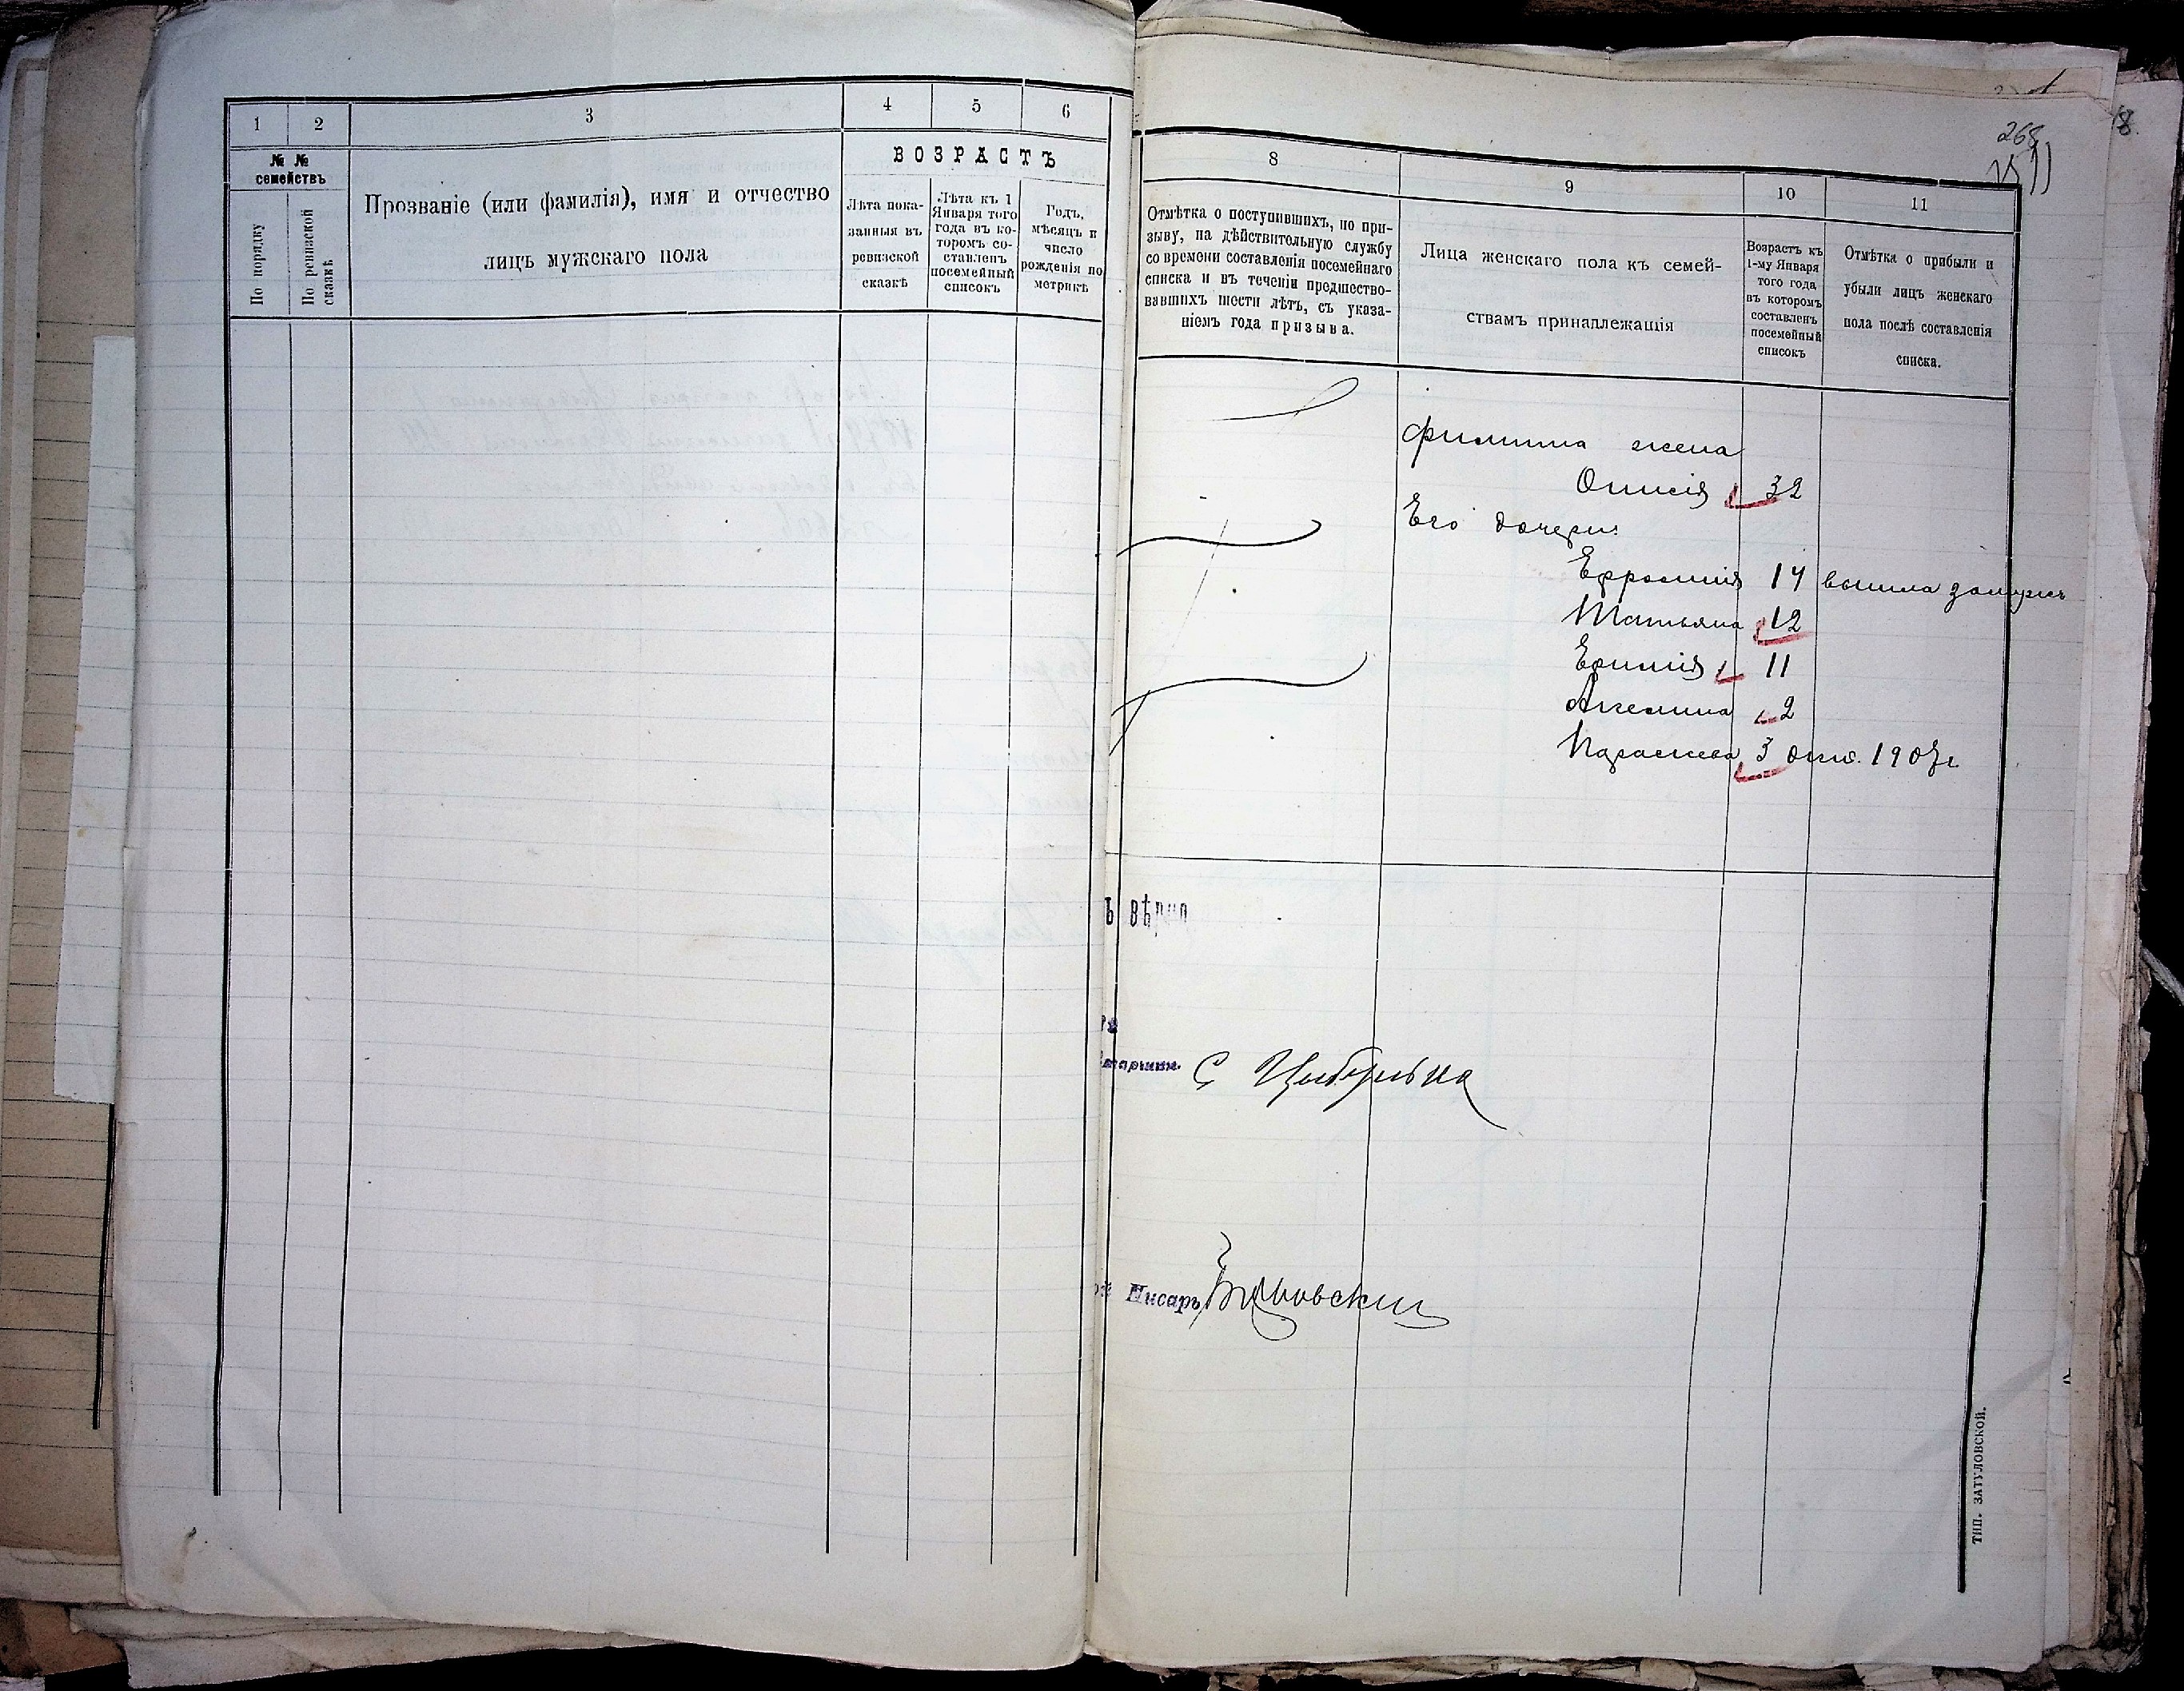 1
2
3
4
5
6
№ №
семействъ
По порядку
По ревизской
сказкѣ
Прозваніе (или фамилія), имя и отчество
лицъ мужскаго пола
ВОЗРАСТЪ
Лѣта пока-
занныя въ
ревизской
сказкѣ
Лѣта къ 1
Января того
года въ ко-
торомъ со-
ставленъ
посемейный
списокъ
Годъ,
мѣсяцъ и
число
рожденія по
метрикѣ
268
8
9
10
11
Отмѣтка о поступившихъ, по при-
зыву, на дѣйствительную службу
со времени составленія посемейнаго
списка и въ теченіи предшество-
вавшихъ шести лѣтъ, съ указа-
ніемъ года призыва.
Лица женскаго пола къ семей-
ствамъ принадлежащія
Возрастъ къ
1-му Января
того года
въ которомъ
составленъ
посемейный
списокъ
Отмѣтка о прибыли и
убыли лицъ женскаго
пола послѣ составленія
списка.
Филиппа жена
Онисія 32
Его дочери:
Ефросинія 14 вышла замужъ
Татьяна 12
Ефимія 11
Ангелина 2
Параскева 3 окт. 1907г
ъ вѣрно
С Цыбулька
Писарь
ТИП. ЗАТУЛОВСКОЙ.